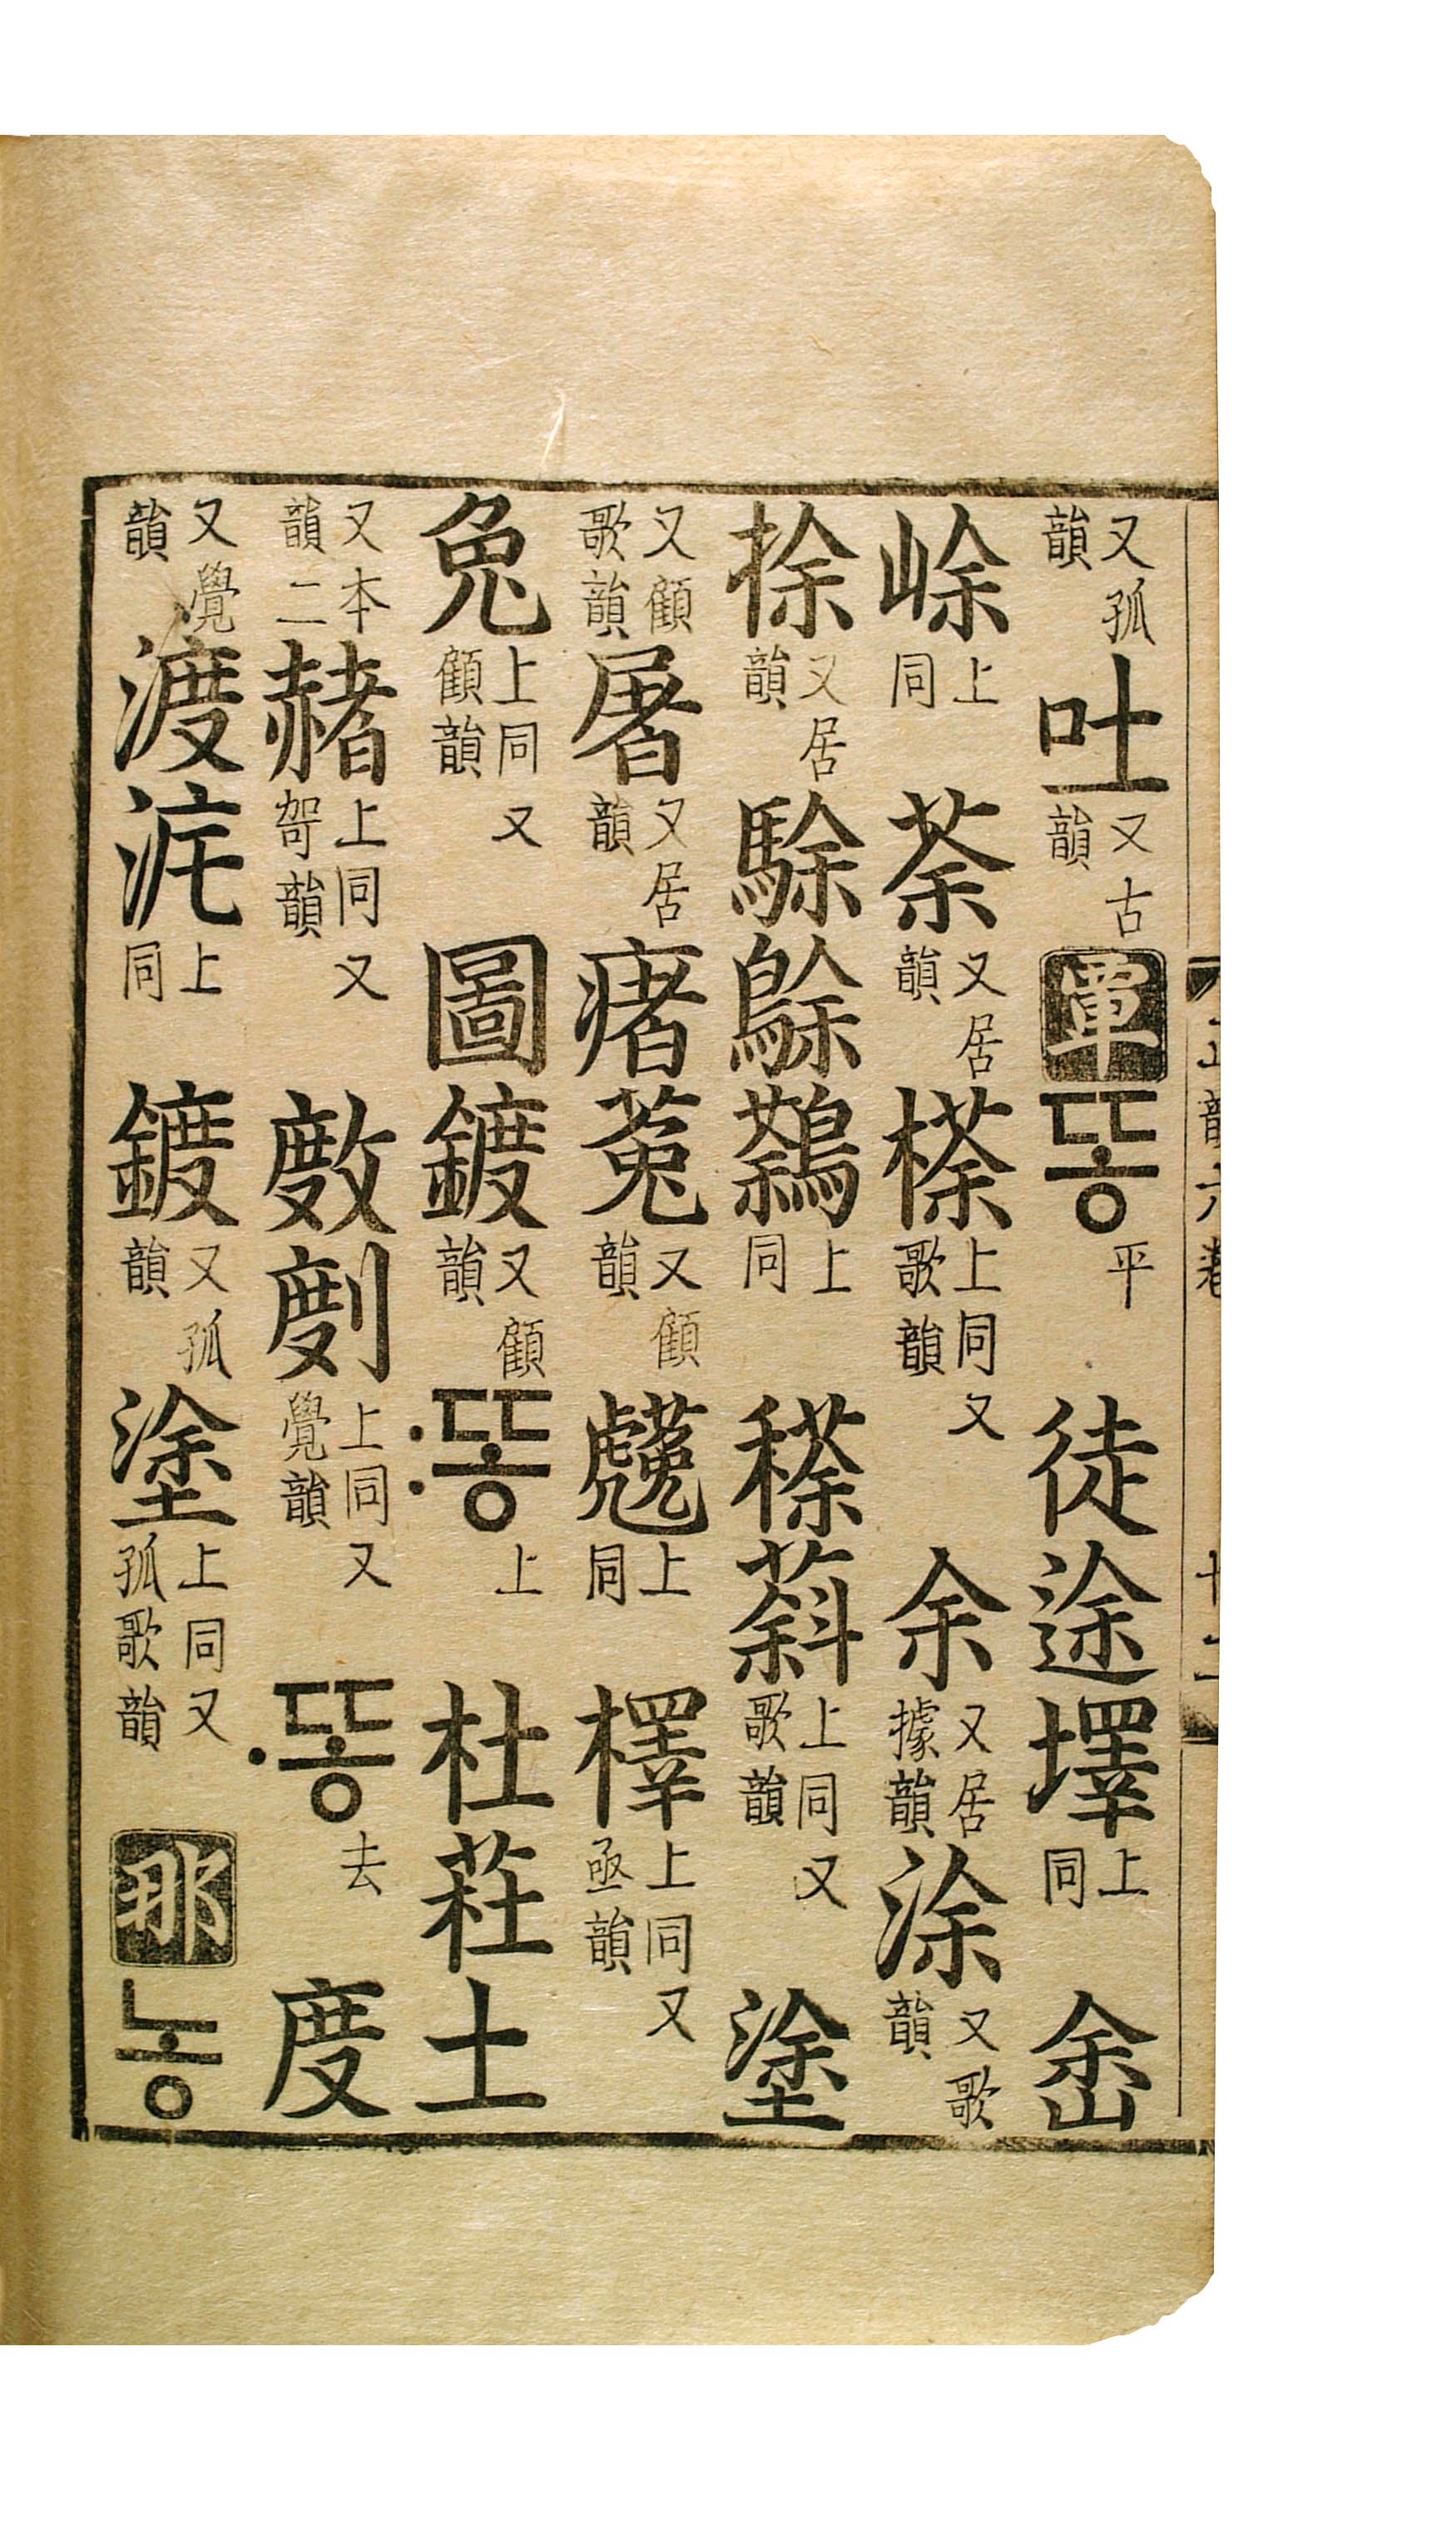 又孤韻吐又古韻覃똥平徒途墿上同峹
峹上同荼又居韻㯠上同又歌韻余又居據韻涂又歌韻
捈又居韻駼鵌鷋上同稌蒣上同又歌韻塗
又顧歌韻屠又居韻瘏菟又顧韻䖘上同檡上同又亟韻
兔上同又顧韻圖鍍又顧韻똥上杜荰土
又本韻二赭上同又哿韻敷剫上同又覺韻똥去度
又覺韻渡㡯上同鍍又孤韻塗上同又孤歌韻那농